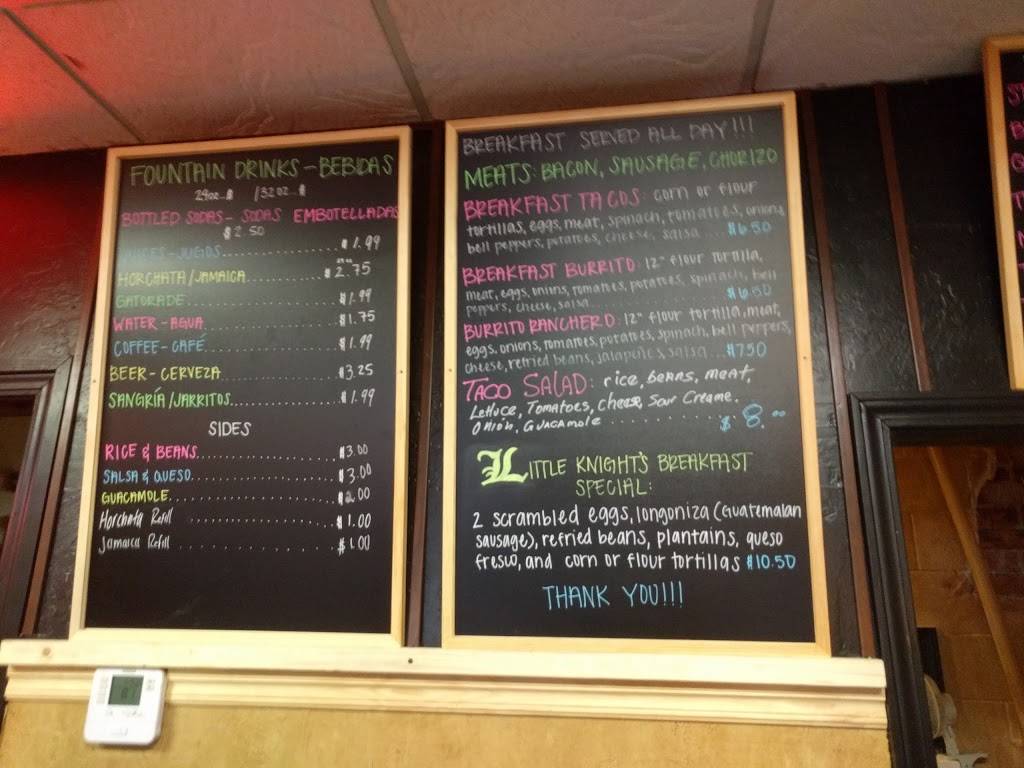 FOUNTAIN DRINKS - BEBIDAS
24oz. $ /32oz. $
BOTTLED SODAS - SODAS EMBOTELLADAS
$2.50
JUICES - JUGOS $1.99
HORCHATA/JAMAICA $2.75
GATORADE $1.99
WATER - AGUA $1.75
COFFEE - CAFÉ $1.99
BEER - CERVEZA $3.25
SANGRÍA/JARRITOS $1.99
SIDES
RICE & BEANS $3.00
SALSA & QUESO $3.00
GUACAMOLE $2.00
Horchata Refill $1.00
Jamaica Refill $1.00
BREAKFAST SERVED ALL DAY!!!
MEATS: BACON, SAUSAGE, CHORIZO
BREAKFAST TACOS: corn or flour
tortillas, eggs, meat, spinach, tomatoes, onions,
bell peppers, potatoes, cheese, salsa ... $6.50
BREAKFAST BURRITO: 12" flour tortilla,
meat, eggs, onions, tomatoes, potatoes, spinach, bell
peppers, cheese, salsa $6.50
BURRITO RANCHERO: 12" flour tortilla, meat,
eggs, onions, tomatoes, potatoes, spinach, bell peppers,
cheese, refried beans, jalapeños, salsa ... $7.50
TACO SALAD: rice, beans, meat,
Lettuce, Tomatoes, Cheese, Sour Creame.
Onion, Guacamole $8.00
LITTLE KNIGHT'S BREAKFAST
SPECIAL:
2 scrambled eggs, longoniza (Guatemalan
sausage), refried beans, plantains, queso
fresco, and corn or flour tortillas $10.50
THANK YOU!!!